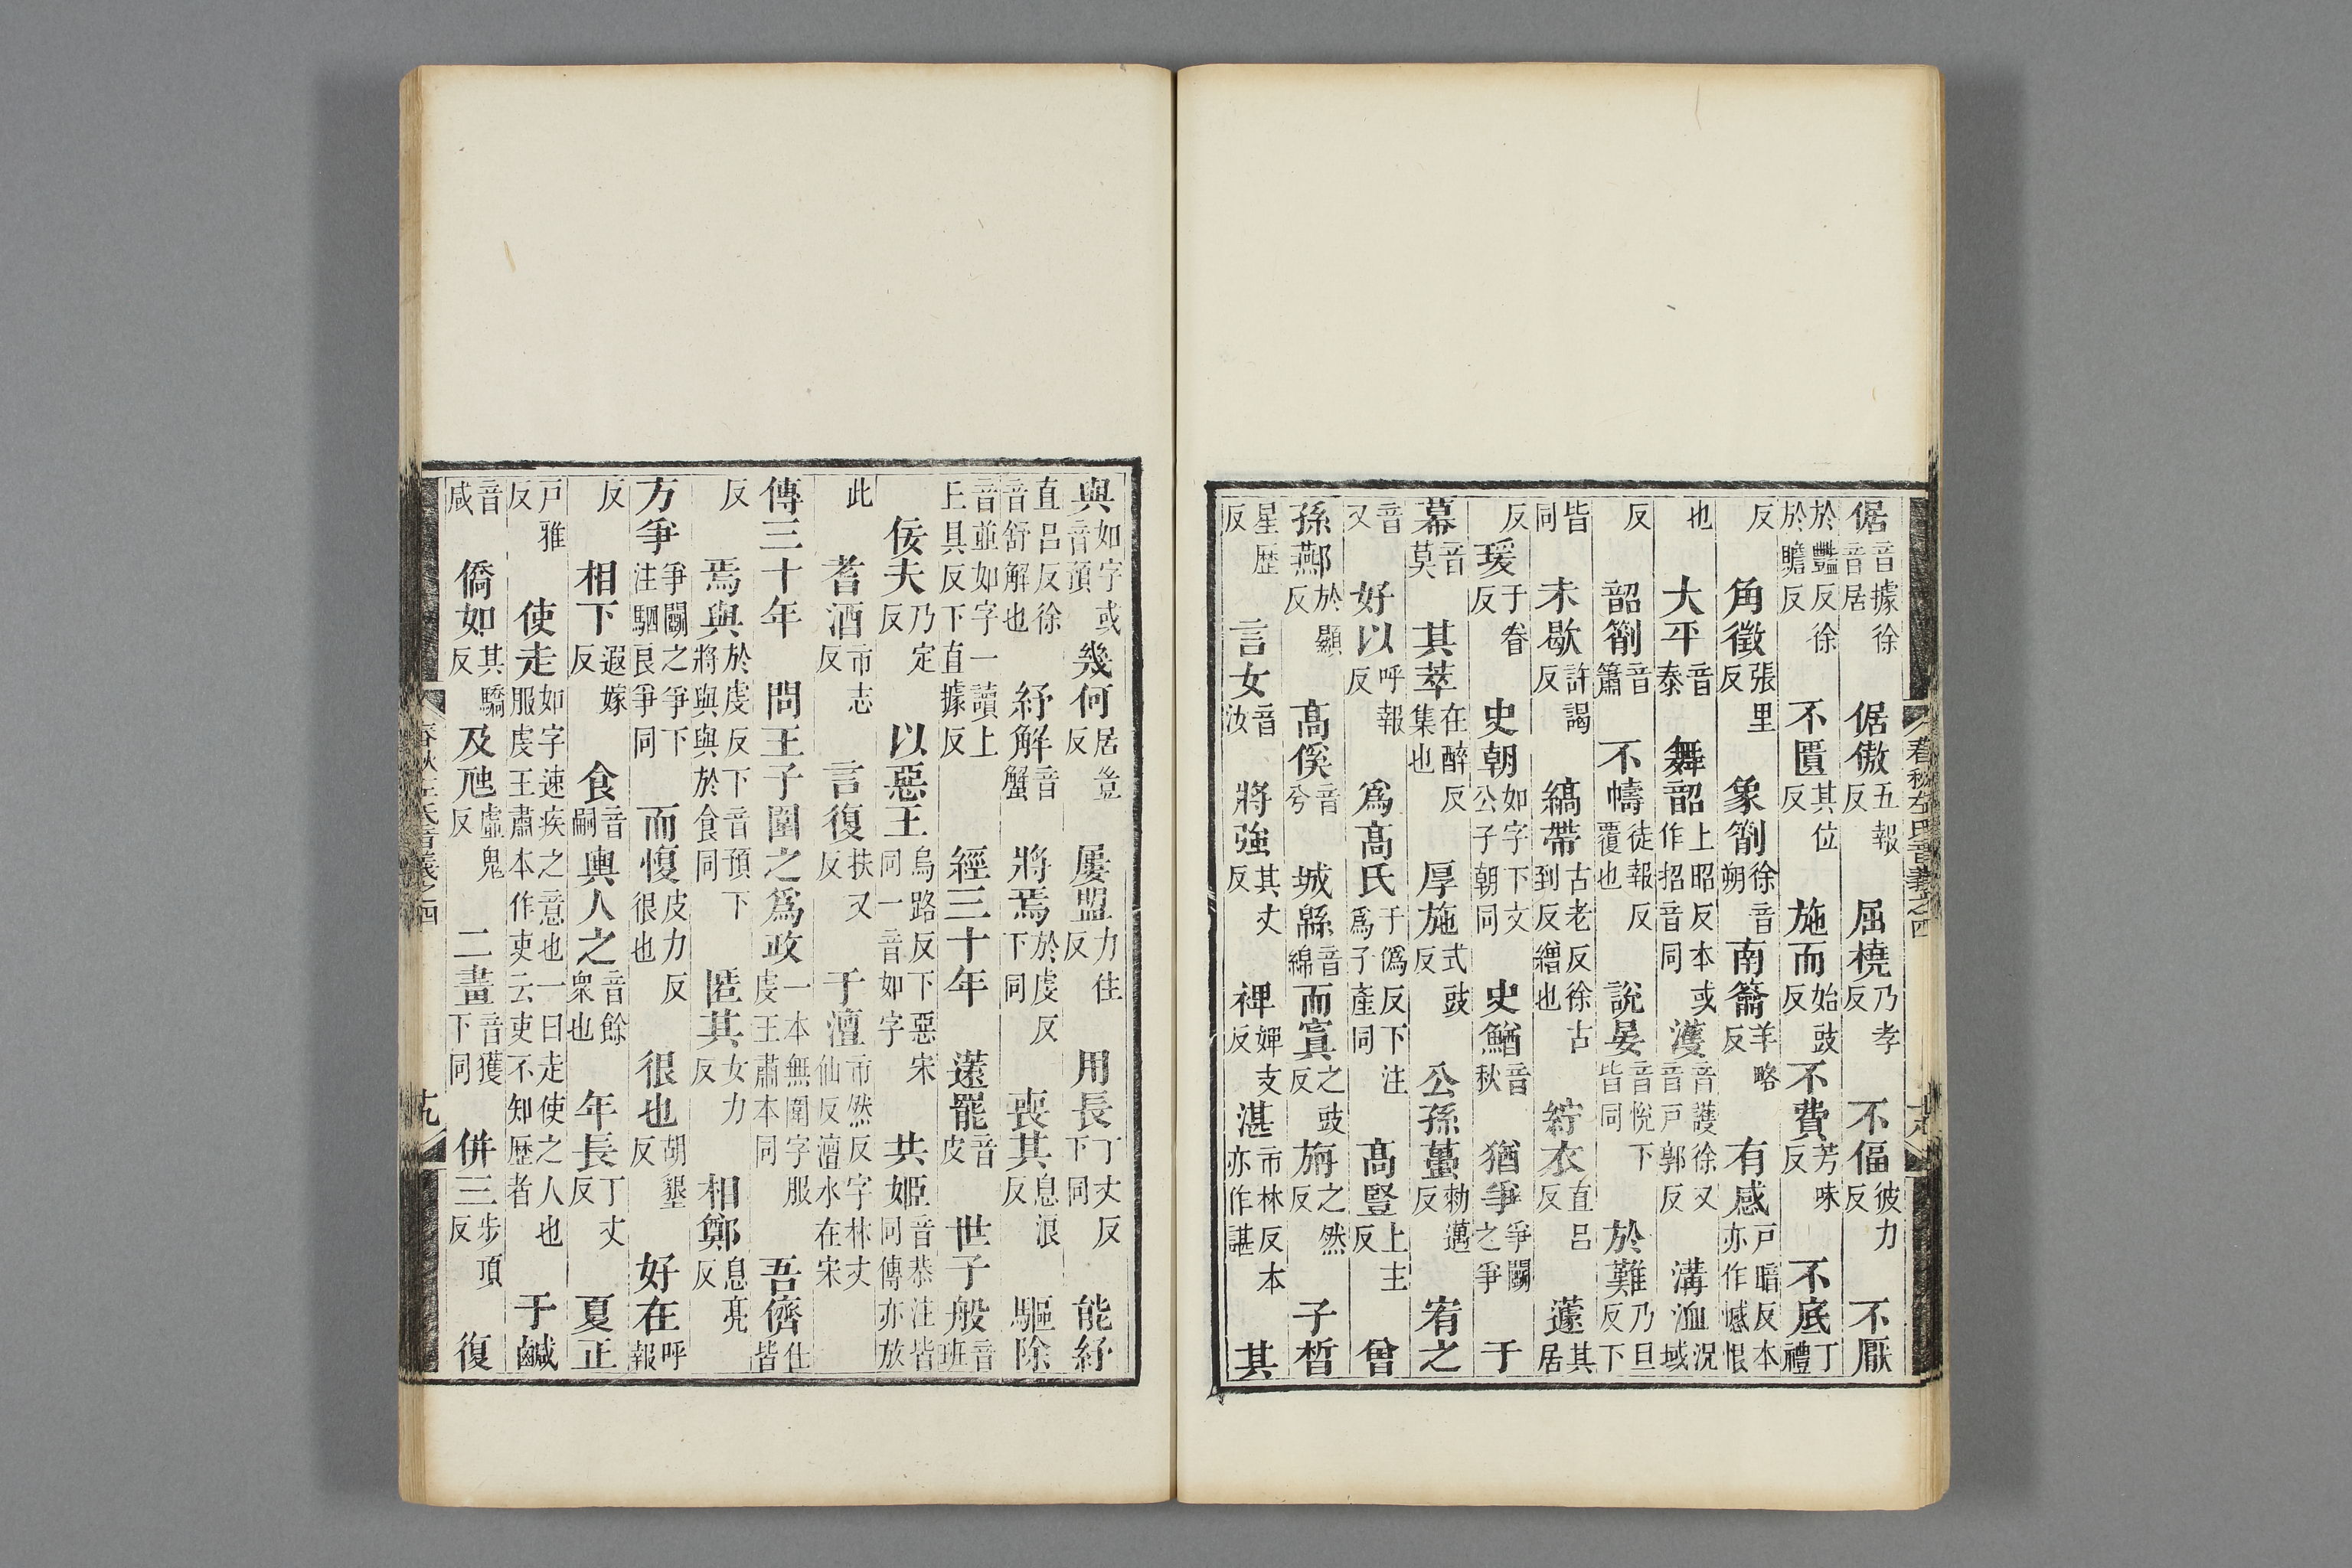 春秋左氏音義之四
倨音據徐音居 倨傲五報反 屈橈乃孝反 不偪彼力反 不厭
於豔反徐於贍反 不匱其位反 施而始豉反 不費芳味反 不底丁禮
反 角徵張里反 象箾徐音朔 南籥羊略反 有感戶暗反本亦作憾恨
也 大平音泰 舞韶上昭反本或作招音同 濩音護徐又音戶郭反 溝洫況域
反 韶箾音簫 不幬徒報反覆也 說晏音悅下皆同 於難乃旦反下
皆同 未歇許謁反 縞帶古老反徐古到反繒也 紵衣直呂反 蘧其居
反 瑗于眷反 史朝如字下文公子朝同 史鰌音秋 猶爭爭鬬之爭 于
幕音莫 其萃在醉反集也 厚施式豉反 公孫蠆勑邁反 宥之
音又 好以呼報反 爲髙氏于僞反下注爲子產同 髙豎上主反 曾
孫酀於顯反 髙傒音兮 城緜音綿 而寘之豉反 旃之然反 子皙
星歷反 言女音汝 將強其丈反 裨婢支反 湛市林反本亦作諶 其
與如字或音預 幾何居豈反 屢盟力住反 用長丁丈反下同 能紓
直呂反徐音舒解也 紓解音蟹 將焉於虔反下同 喪其息浪反 驅除
音並如字一讀上上具反下直據反 經三十年 薳罷音皮 世子般音班
佞夫乃定反 以惡王烏路反下惡宋同一音如字 共姬音恭注皆同傳亦放
此 耆酒市志反 言復扶又反 于澶市然反字林丈仙反澶水在宋
傳三十年 問王子圍之爲政一本無圍字服虔王肅本同 吾儕仕皆
反 焉與於虔反下音預下將與與於食同 匿其女力反 相鄭息亮反
方爭爭鬬之爭下注駟良爭同 而愎皮力反很也 很也胡墾反 好在呼報
反 相下遐嫁反 食音嗣 輿人之音餘衆也 年長丁丈反 夏正
戶雅反 使走如字速疾之意也一曰走使之人也服虔王肅本作吏云吏不知歷者 于鹹
音咸 僑如其驕反 及虺虛鬼反 二畫音獲下同 併三步頂反 復